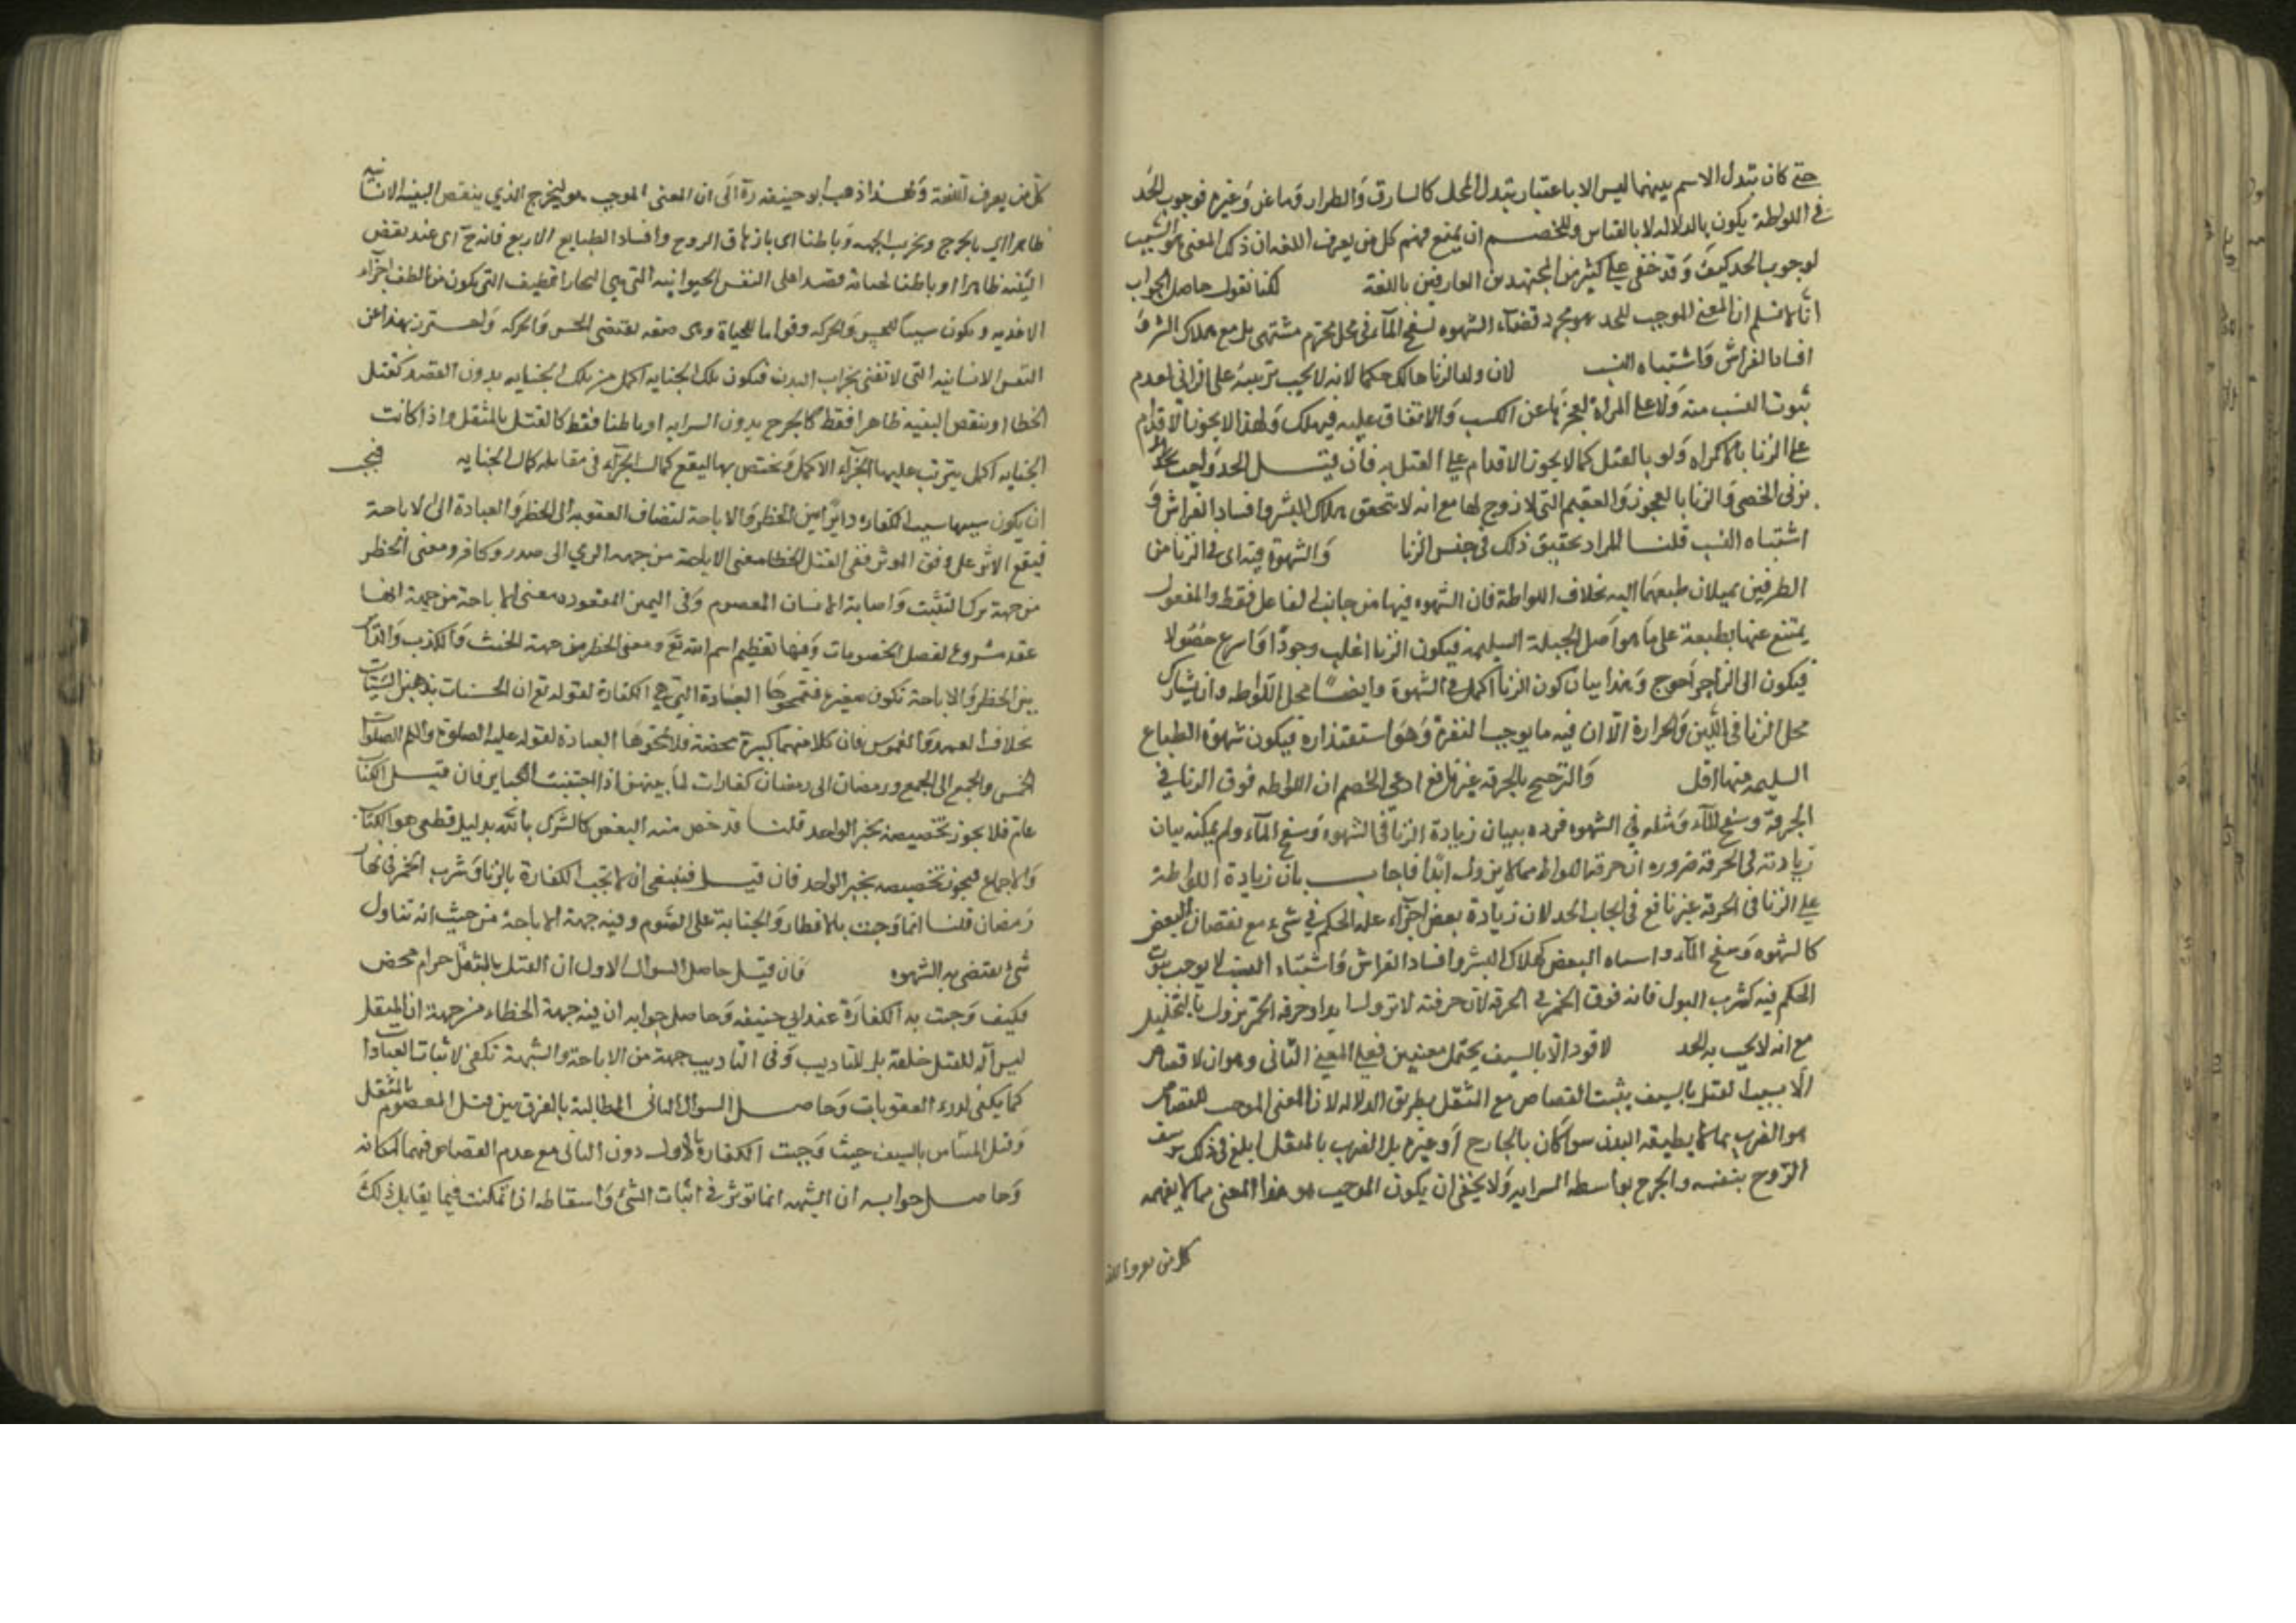 حتى كان تبدل الاسم بينهما ليس الا باعتبار تبدل المحل كالسارق والطرار وماعز وغيره فوجوب الحد
في اللواطة يكون بالدلالة لا بالقياس وللخصم ان يمنع فهم كل من يعرف اللغة ان ذلك المعنى هو السبب
لوجوب الحد كيف وقد خفي على كثير من المجتهدين العارفين باللغة لكنا نقول حاصل الجواب
انا لا نسلم ان المعنى الموجب للحد هو مجرد قضاء الشهوة بسفح الماء في محل محرم مشتهى بل مع هلاك البشر و
افساد الفراش واشتباه النسب لان ولد الزنا هالك حكما لانه لا يجب تربيته على الزاني لعدم
ثبوت النسب منه ولا على المراة لعجزها عن الكسب والانفاق عليه فيهلك ولهذا لا يجوز الاقدام
على الزنا بالاكراه ولو بالقتل كما لا يجوز الاقدام على القتل به فان قيل الحد واجب
بزنى الخصي والزنا بالعجوز والعقيم التي لا زوج لها مع انه لا يتحقق هلاك البشر وافساد الفراش و
اشتباه النسب قلنا المراد تحقيق ذلك في جنس الزنا والشهوة فيه اى في الزنا من
الطرفين لميلان طبعهما اليه بخلاف اللواطة فان الشهوه فيها من جانب الفاعل فقط والمفعول
يمتنع عنها بطبعه على ما هو اصل الجبلة السليمة فيكون الزنا اغلب وجودا واسرع حصولا
فيكون الى الزاجر احوج وهذا بيان كون الزنا اكمل في الشهوة وايضا محل اللواطه وان شارك
محل الزنا في اللين والحرارة الا ان فيه ما يوجب النفرة وهو استقذاره فيكون شهوة الطباع
السليمه منها اقل والترجيح بالحرمة غير نافع ادعى الخصم ان اللواطه فوق الزنا في
الحرمة وسفح الماء ومثله في الشهوه فرده ببيان زيادة الزنا في الشهوه وسفح الماء ولم يمكنه بيان
زيادته في الحرمة ضرورة ان حرمة اللواط مما لا يزول ابدا فاجاب بان زيادة اللواطة
على الزنا في الحرمة غير نافع في ايجاب الحد لان زيادة بعض اجزاء علة الحكم في شيء مع نقصان البعض
كالشهوه وسفح الماء البعض كهلاك البشر وافساد الفراش واشتباه النسب لا يوجب ثبوت
الحكم فيه كشرب البول فانه فوق الخمر في الحرمة لان حرمته لا تزول ابدا وحرمة الخمر تزول بالتخليل
مع انه لا يجب به الحد لا قود الا بالسيف يحتمل معنيين فعلى المعنى الثاني وهو ان لا قصاص
الا بسبب القتل بالسيف يثبت القصاص مع المثقل بطريق الدلالة لان المعنى الموجب للقصاص
هو الضرب بما لا يطيقه البدن سوا كان بالجارح او غيره بل الضرب بالمثقل ابلغ في ذلك
الروح بنفسه والجرح بواسطه السرايه ولا يخفى ان يكون الموجب هو هذا المعنى مما لا يفهمه
كل من يعرف اللغة
كل من يعرف اللغة ولهذا ذهب ابو حنيفه ره الى ان المعنى الموجب هو الجرح الذي ينقص البنية الانسانيه
ظاهرا اي بالجرح وتخريب الجثه وباطنا اى بازهاق الروح وافساد الطبايع الاربع فانه ح اى عند نقض
البنية ظاهرا وباطنا الجناية قصدا على النفس الحيوانيه التي هي البخار اللطيف التي يكون من الطف اجزاء
الاغذيه ويكون سببا للحس والحركه وقواما للحياة وهى صفه تقتضى الحس والحركه واحترز بهذا عن
النفس الانسانيه التي لا تفنى بخراب البدن فيكون تلك الجنايه اكمل من تلك الجنايه بدون القصد كقتل
الخطا او بنقص البنيه ظاهرا فقط كالجرح بدون السرايه او باطنا فقط كالقتل بالمثقل واذا كانت
الجنايه اكمل يترتب عليها الجزاء الاكمل ويختص بها ليقع كمال الجزاء في مقابله كمال الجنايه فيجب
ان يكون سببها سبب الكفاره دايرا بين الحظر والاباحة لتضاف العقوبه الى الحظر والعبادة الى الاباحة
فيقع الاثر على وفق الموثر ففى القتل الخطا معنى الاباحة من جهه الرمي الى صيد او كافر ومعنى الحظر
من جهة ترك التثبت واصابة الانسان المعصوم وفى اليمين المعقوده معنى الاباحة من جهة انها
عقد مشروع لفصل الخصومات وفيها تعظيم اسم الله تع ومعنى الحظر من جهة الحنث والكذب والداير
بين الحظر والاباحة تكون صغيرة فتمحوها العبادة التي هي الكفارة لقوله تع ان الحسنات يذهبن السيئات
بخلاف العمد والغموس فان كلا منهما كبيرة محضة فلا تمحوها العبادة لقوله عليه الصلوة والسلم الصلوات
الخمس والجمع الى الجمع ورمضان الى رمضان كفارات لما بينهن اذا اجتنبت الكباير فان قيل الكتاب
عام فلا يجوز تخصيصه بخبر الواحد قلنا قد خص منه البعض كالشرك بالله بدليل قطعى هو الكتاب
والاجماع فيجوز تخصيصه بخبر الواحد فان قيل فينبغى ان لا تجب الكفارة بالزنا وشرب الخمر في نهار
رمضان قلنا انما وجبت بالافطار والجناية على الصوم وفيه جهة الاباحة من حيث انه تناول
شئ يقتضى به الشهوه فان قيل حاصل السوال الاول ان القتل بالمثقل حرام محض
فكيف وجبت به الكفارة عند ابي حنيفه وحاصل جوابه ان فيه جهة الخطاء من جهة ان المثقل
ليس آلة للقتل خلقة بل للتاديب وفى التاديب جهة من الاباحة والشبهة تكفي لاثبات العبادات
كما يكفى لدرء العقوبات وحاصل السوال الثاني المطالبة بالفرق بين قتل المعصوم بالمثقل
وقتل المستامن بالسيف حيث وجبت الكفاره بالاول دون الثاني مع عدم القصاص فيهما لمكانه
وحاصل جوابه ان الشبهه انما توثر في اثبات الشئ واسقاطه اذا تمكنت فيما يقابل ذلك